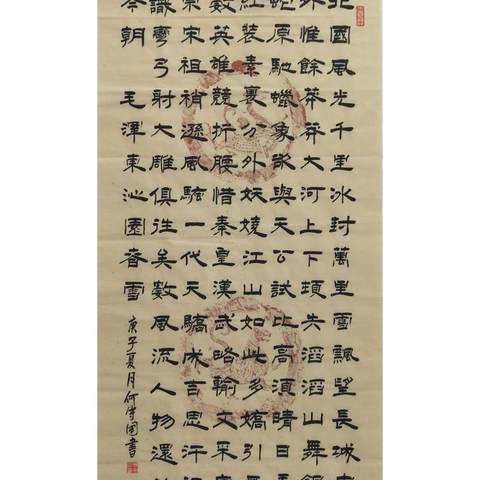 北國風光千里冰封萬里雪飄望長城內
外惟餘莽莽大河上下頓失滔滔山舞銀
蛇原馳蠟象欲與天公試比高須晴日看
紅裝素裹分外妖嬈江山如此多嬌引無
數英雄競折腰惜秦皇漢武略輸文采唐
宗宋祖稍遜風騷一代天驕成吉思汗只
識彎弓射大雕俱往矣數風流人物還看
今朝 毛澤東沁園春雪
庚子夏月何國書